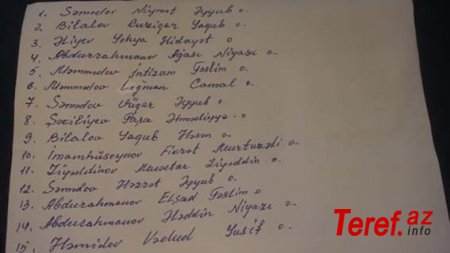 1. Səmədov Niymət Əyyub o.
2. Bilalov Ruzigar Yaqub o.
3. Əliyev Yəhya Hidayət o.
4. Abdurrahmanov Ağası Niyazi o.
5. Məmmədov İntizam Təslim o.
6. Məmmədov Loğman Camal o.
7. Səmədov Vüqar Əyyub o.
8. Şəxiliyev Paşa
9. Bilalov Yaqub Həsən o.
10. İmamhüseynov Fizrət Murtuzəli o.
11. Ziyəddinov Muxtar Ziyəddin o.
12. Səmədov Həzrət Əyyub o.
13. Abdurahmanov Elşad Təslim o
14. Abdurahmanov Həddin Niyazi o.
15. Həmidov Vədud Yusif o.
Teref.az
.info